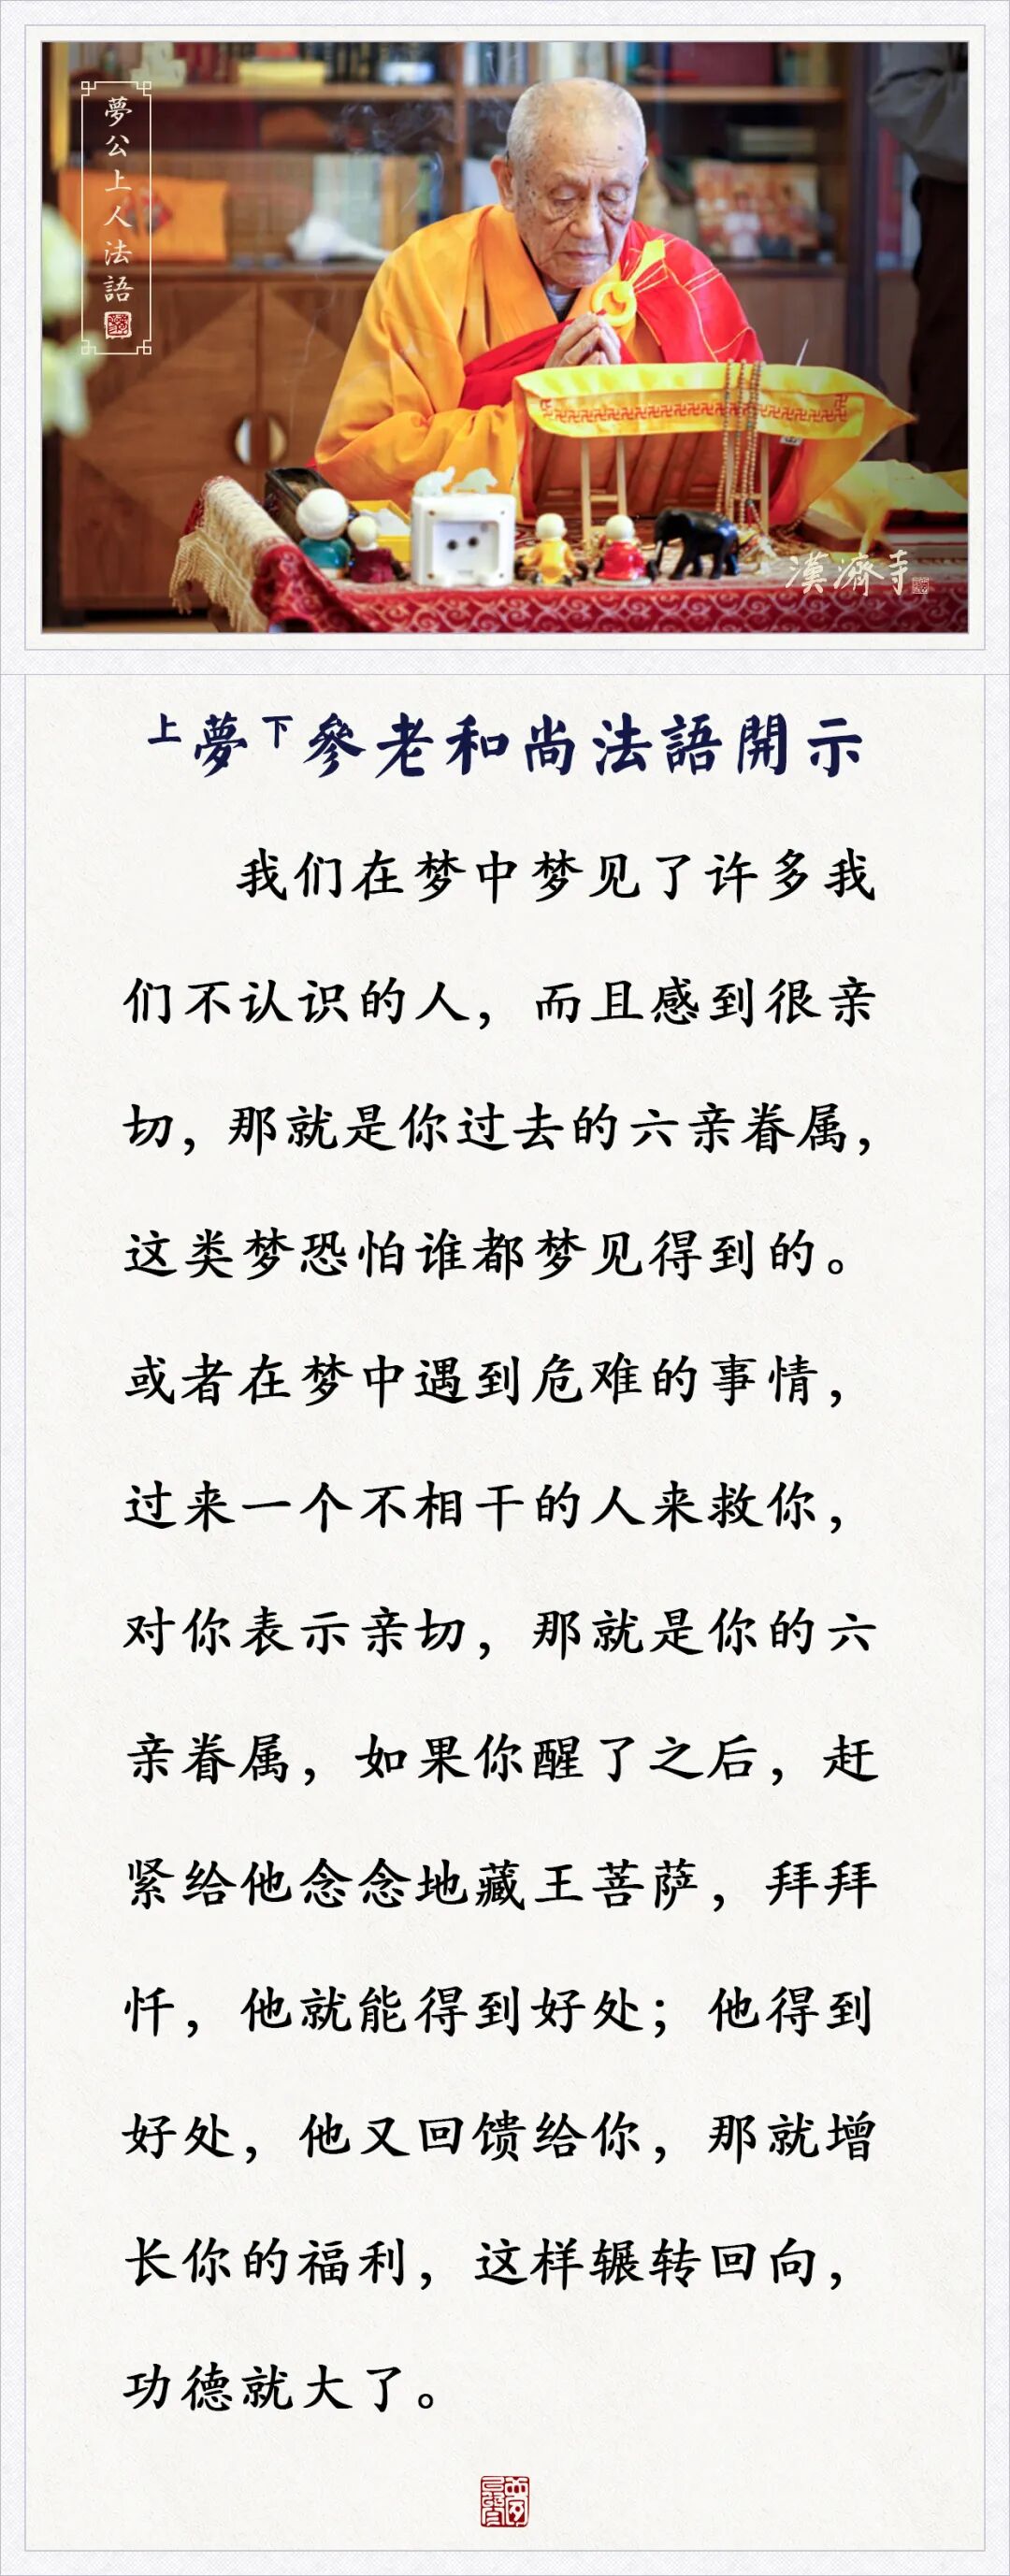 夢公上人法語
漢濟寺
上夢下參老和尚法語開示
我们在梦中梦见了许多我
们不认识的人，而且感到很亲
切，那就是你过去的六亲眷属，
这类梦恐怕谁都梦见得到的。
或者在梦中遇到危难的事情，
过来一个不相干的人来救你，
对你表示亲切，那就是你的六
亲眷属，如果你醒了之后，赶
紧给他念念地藏王菩萨，拜拜
忏，他就能得到好处；他得到
好处，他又回馈给你，那就增
长你的福利，这样辗转回向，
功德就大了。